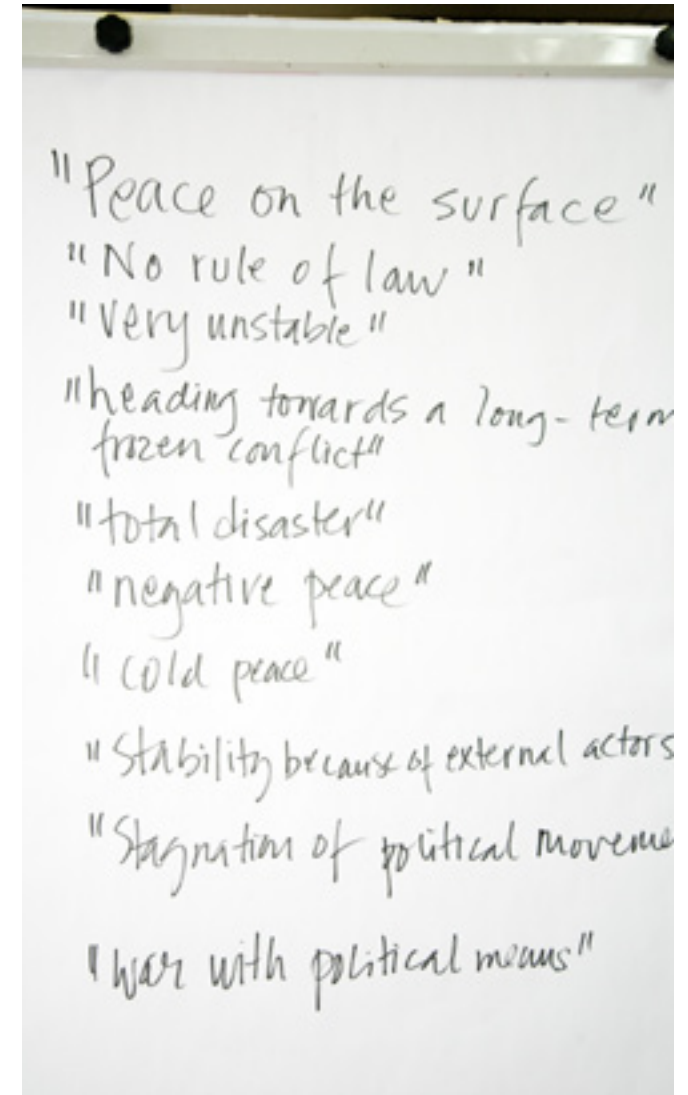 "Peace on the surface"
"No rule of law"
"very unstable"
"heading towards a long-term
frozen conflict"
"total disaster"
"negative peace"
"cold peace"
"Stability because of external actors
"Stagnation of political moveme
"war with political means"